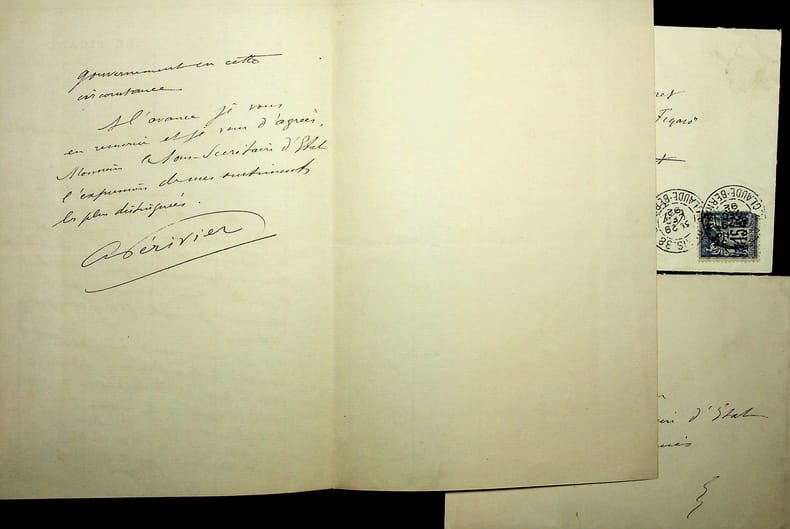 gouvernement en cette
circonstance
A l'avance je vous
en remercie et je vous d'agréer,
Monsieur le Sous-Secrétaire d'Etat
l'expression de mes sentiments
les plus distingués.
A Périvier
Figaro
CLAUDE-BERN
15
d'Etat